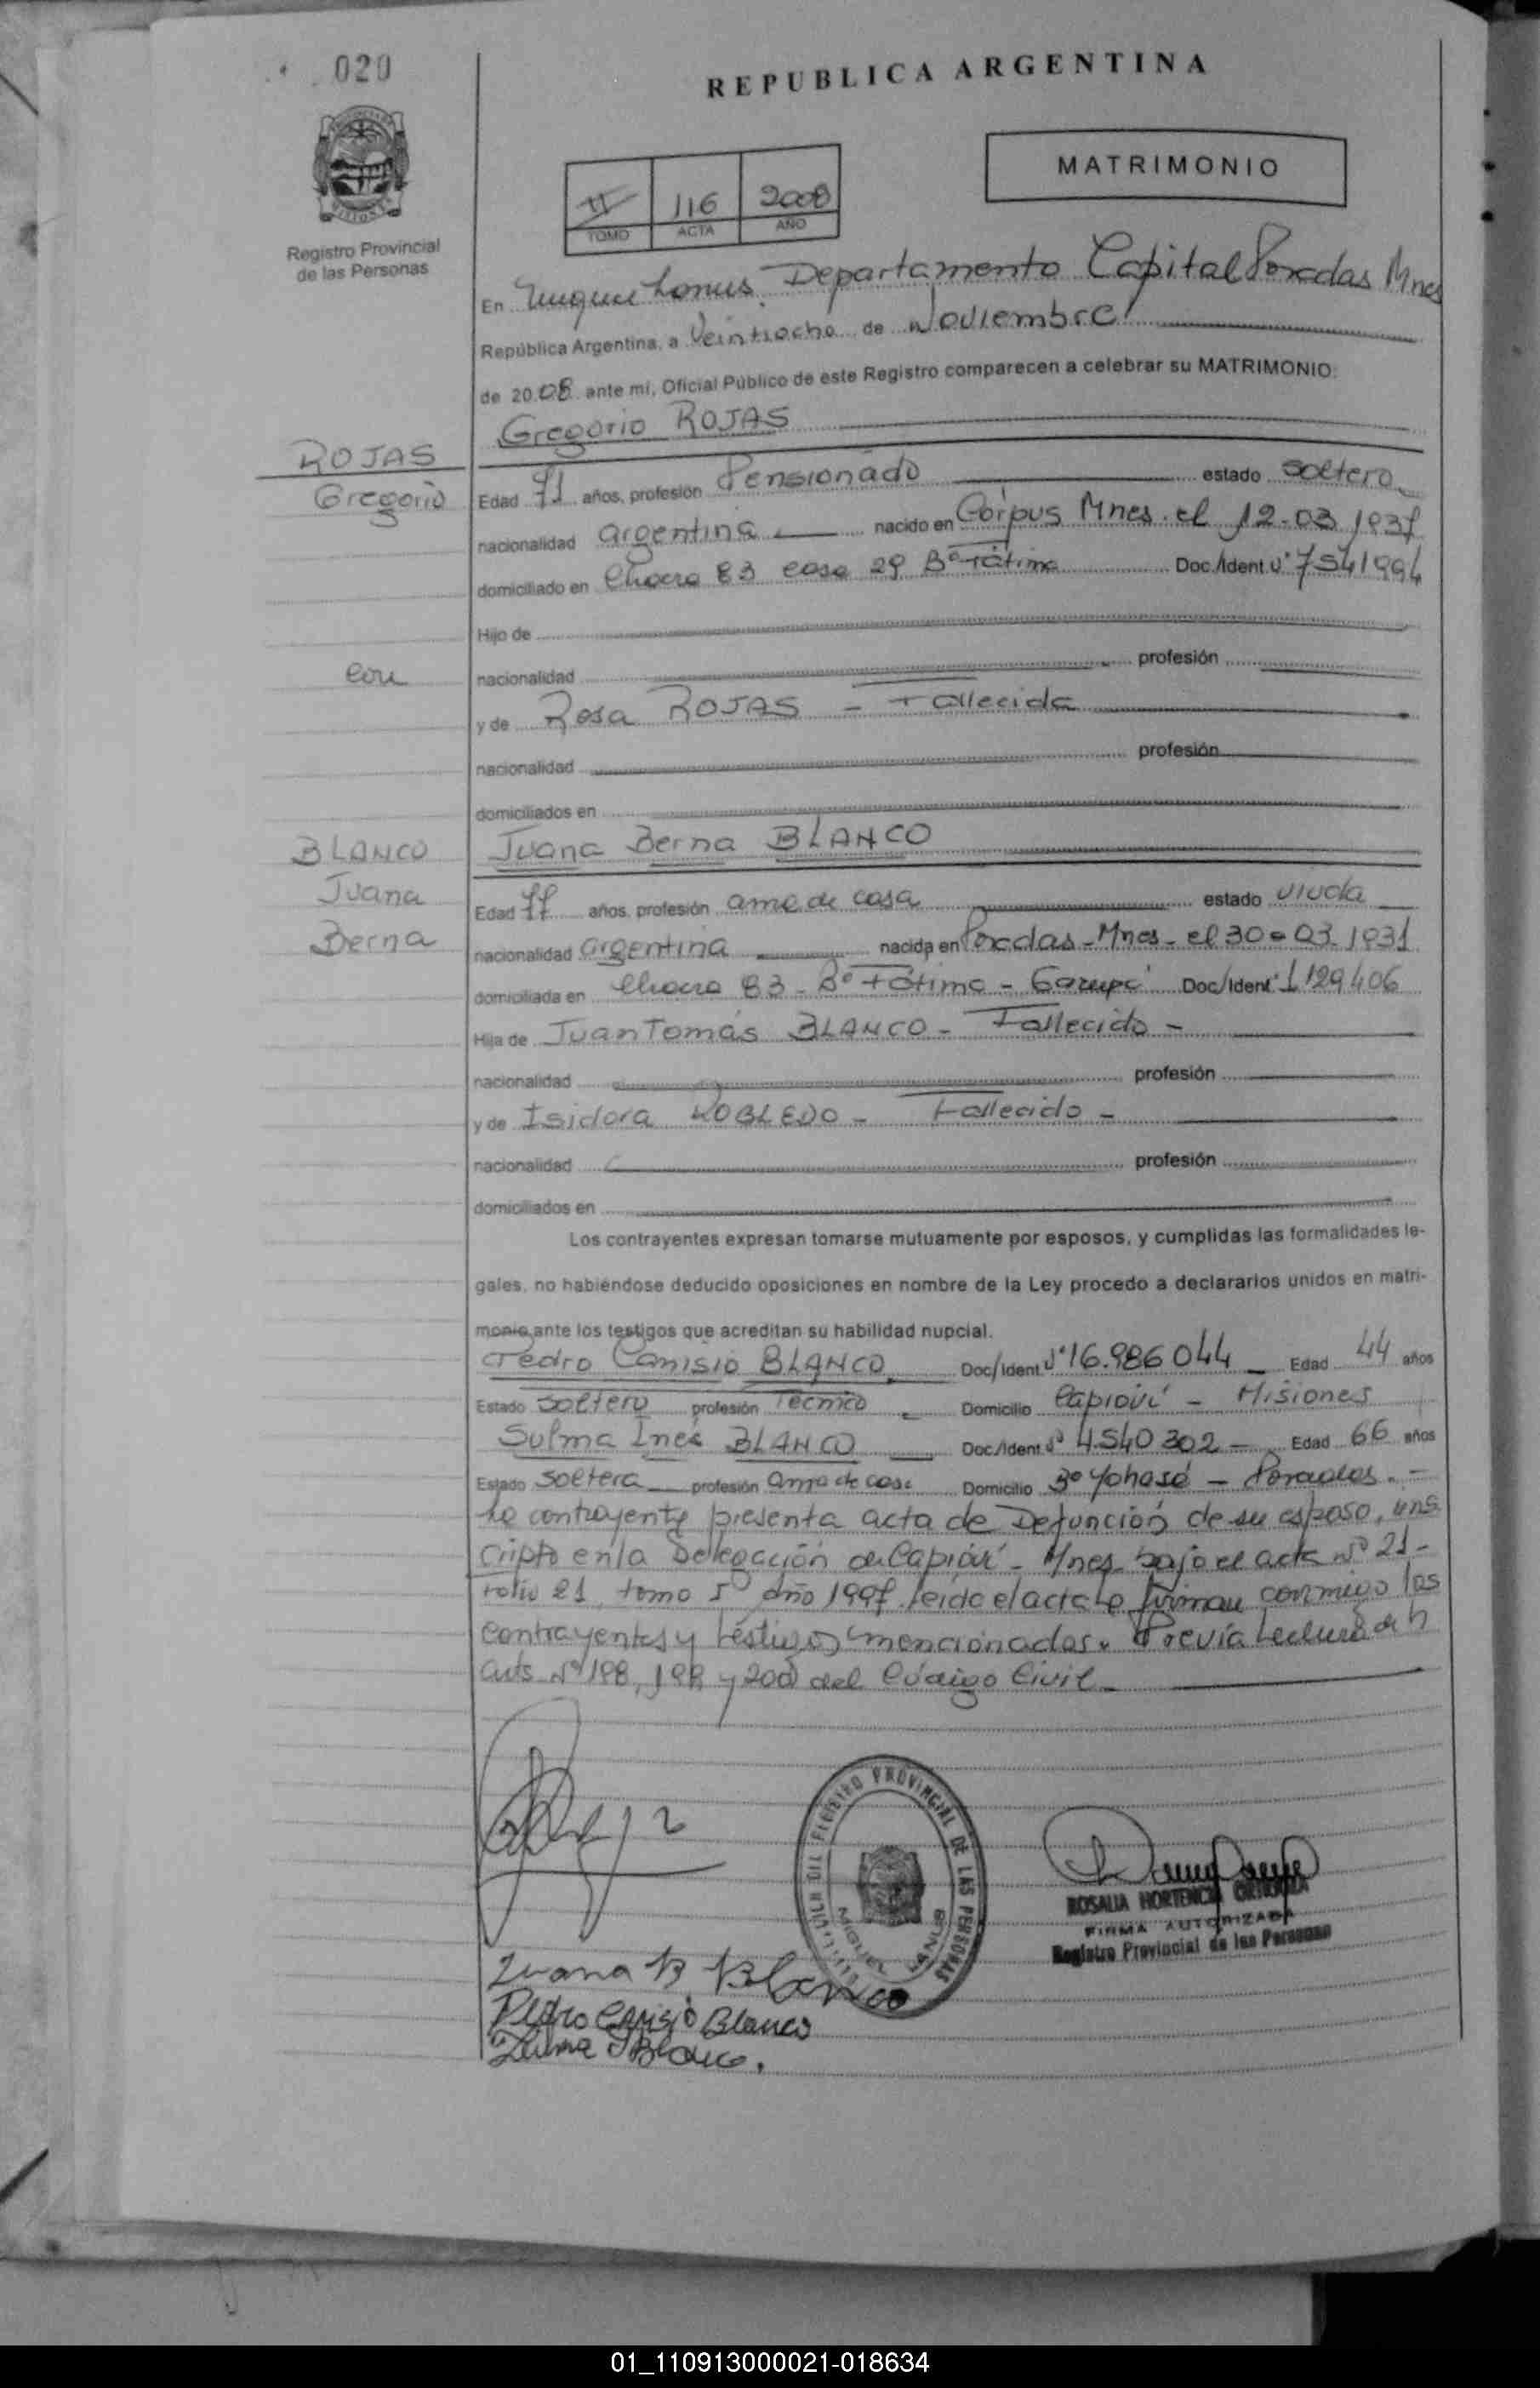 020
REPUBLICA ARGENTINA
MATRIMONIO
II 116 2008
TOMO ACTA AÑO
Registro Provincial
de las Personas
En Miguel Lanus. Departamento Capital Posadas Mnes
República Argentina, a Veintiocho de Noviembre
de 2008 ante mí, Oficial Público de este Registro comparecen a celebrar su MATRIMONIO:
Gregorio ROJAS
ROJAS
Gregorio
Edad 71 años, profesión Pensionado estado soltero
nacionalidad argentina nacido en Córpus Mnes. el 12-03-1937
domiciliado en Chacra 83 casa 29 Bº Fátima Doc./Ident. Nº 7541994
Hijo de
con
nacionalidad profesión
y de Rosa ROJAS - Fallecida
nacionalidad profesión
domiciliados en
BLANCO
Juana
Berna
Juana Berna BLANCO
Edad 77 años, profesión ama de casa estado viuda
nacionalidad argentina nacida en Posadas - Mnes - el 30-03-1931
domiciliada en Chacra 83 - Bº Fátima - Garupá Doc/Ident 1129406
Hija de Juan Tomás BLANCO - Fallecido -
nacionalidad profesión
y de Isidora ROBLEDO - Fallecido -
nacionalidad profesión
domiciliados en
Los contrayentes expresan tomarse mutuamente por esposos, y cumplidas las formalidades le-
gales, no habiéndose deducido oposiciones en nombre de la Ley procedo a declararlos unidos en matri-
monio ante los testigos que acreditan su habilidad nupcial.
Pedro Canisio BLANCO Doc/Ident Nº 16.986044 Edad 44 años
Estado soltero profesión Técnico Domicilio Capioví - Misiones
Sulma Inés BLANCO Doc/Ident Nº 4.540302 - Edad 66 años
Estado soltera profesión ama de casa Domicilio Bº Yohasá - Posadas. -
La contrayente presenta acta de Defunción de su esposo, ins
cripto en la Delegación de Capioví - Mnes bajo el acta nº 21 -
folio 21 tomo 5º año 1997. leída el acta la firman conmigo los
contrayentes y testigos mencionados. Previa Lectura de
arts. Nº 198, 199 y 200 del Código Civil -
REGISTRO PROVINCIAL DE LAS PERSONAS
MIGUEL LANUS
ROSALIA HORTENCIA
FIRMA AUTORIZADA
Registro Provincial de las Personas
Juana B Blanco
Pedro Canisio Blanco
Zulma I Blanco.
01_110913000021-018634